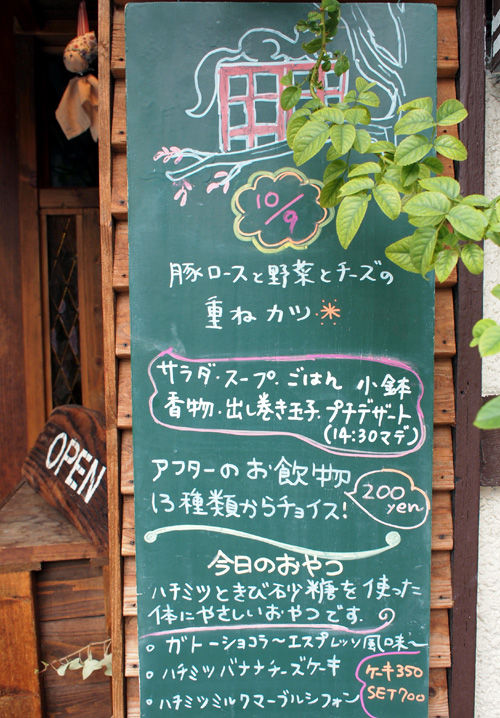 10/9
豚ロースと野菜とチーズの
重ねカツ
サラダ・スープ・ごはん 小鉢
香物・出し巻き玉子・プチデザート
(14:30マデ)
OPEN
アフターのお飲物
13種類からチョイス!
200
yen
今日のおやつ
ハチミツときび砂糖を使った
体にやさしいおやつです。
○ ガトーショコラ〜エスプレッソ風味〜
○ ハチミツバナナチーズケーキ
○ ハチミツミルクマーブルシフォン
ケーキ350
SET700